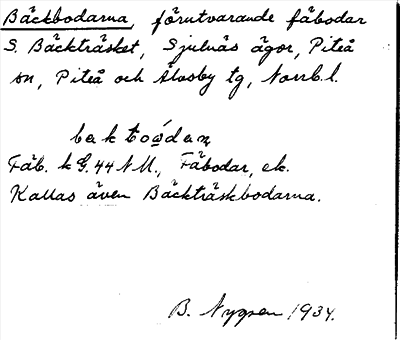 Bäckbodarna, förutvarande fäbodar
S. Bäckträsket, Sjulnäs ägor, Piteå
sn, Piteå och Älvsby tg, Norrb. l.
bakbodan
Fäb. k G. 44 N M., Fäbodar, ek.
Kallas även Bäckträskbodarna.
B. Nygren 1934.